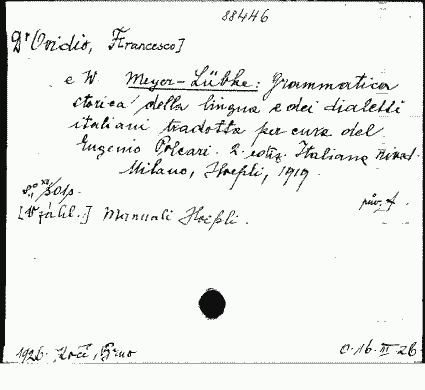 88446
D'Ovidio, Francesco]
e W. Meyer-Lübke: Grammatica
storica della lingua e dei dialetti
italiani tradotta per cura del
Eugenio Polcari. 2. ediz. Italiana
Milano, Hoepli, 1919.
8° 301p.
[V záhl.] Manuali Hoepli.
1926. Kočí, Brno